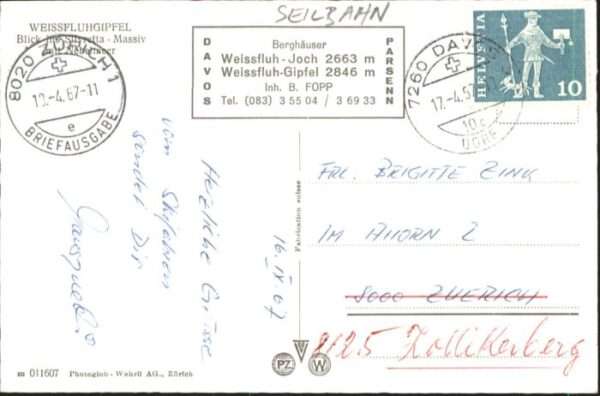 SEILBAHN
WEISSFLUHGIPFEL
Blick Silvretta - Massiv
8020 ZÜRICH 1
19.-4.67-11
e
BRIEFAUSGABE
DAVOS
Berghäuser
Weissfluh-Joch 2663 m
Weissfluh-Gipfel 2846 m
Inh. B. FOPP
Tel. (083) 3 55 04 / 3 69 33
PARSENN
7260 DAVOS
17.-4.67
10c
HELVETIA
10
Herzliche Grüsse
vom Skifahren
sendet Dir
16.IV.67
Fabrication suisse
FRL. BRIGITTE ZINK
IM AHORN 2
8000 ZUERICH
8125 Zollikerberg
m 011607 Photoglob-Wehrli AG., Zürich
PZ W